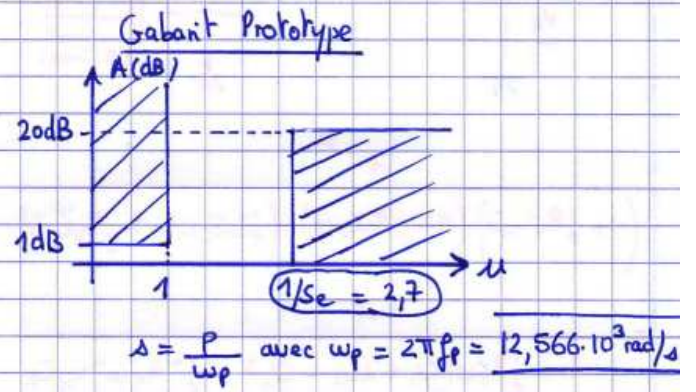 Gabarit Prototype
A(dB)
20dB
1dB
1
1/Se = 2,7
u
s = p/ωp avec ωp = 2πfp = 12,566·10³ rad/s